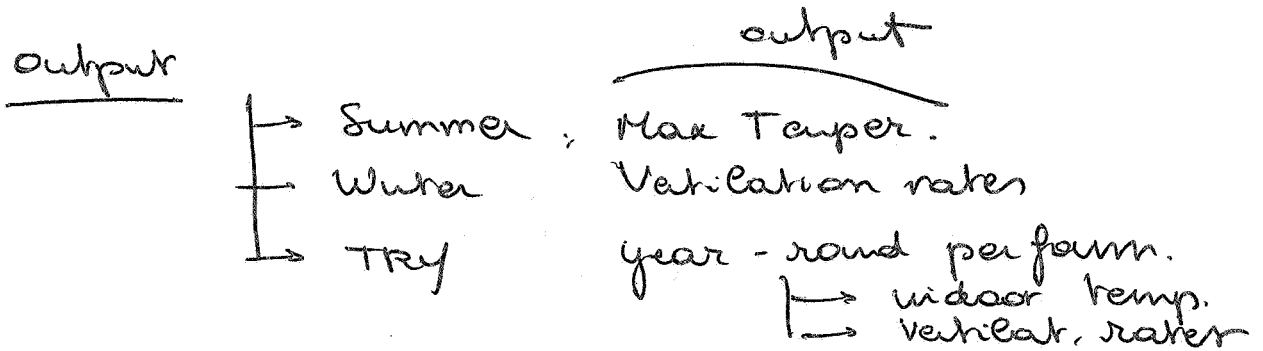 output
output
Summer : Max Temper.
Winter Ventilation rates
TRY year - round perform.
indoor temp.
ventilat. rates